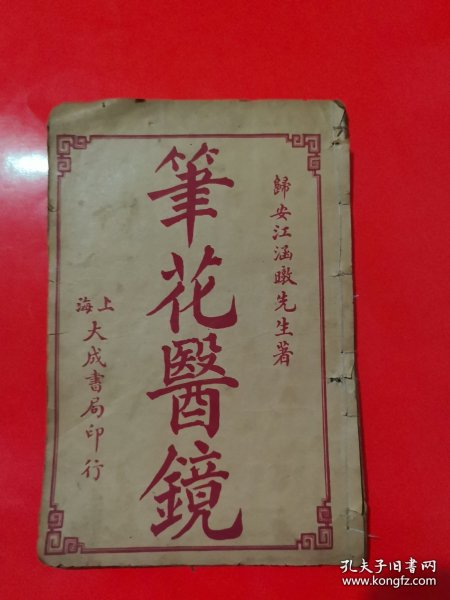 歸安江涵暾先生著
筆花醫鏡
上海
大成書局印行
孔夫子旧书网
www.kongfz.com